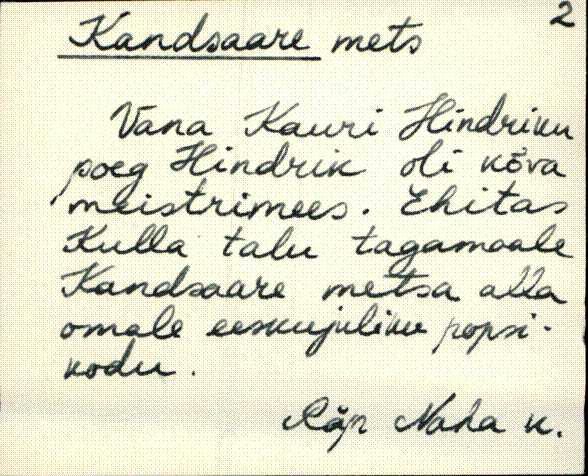 2
Kandsaare mets
Vana Kauri Hindriku
poeg Hindrik oli kõva
meistrimees. Ehitas
Kulla talu tagamaale
Kandsaare metsa alla
omale eeskujuliku popsi-
kodu.
Räp Naha k.